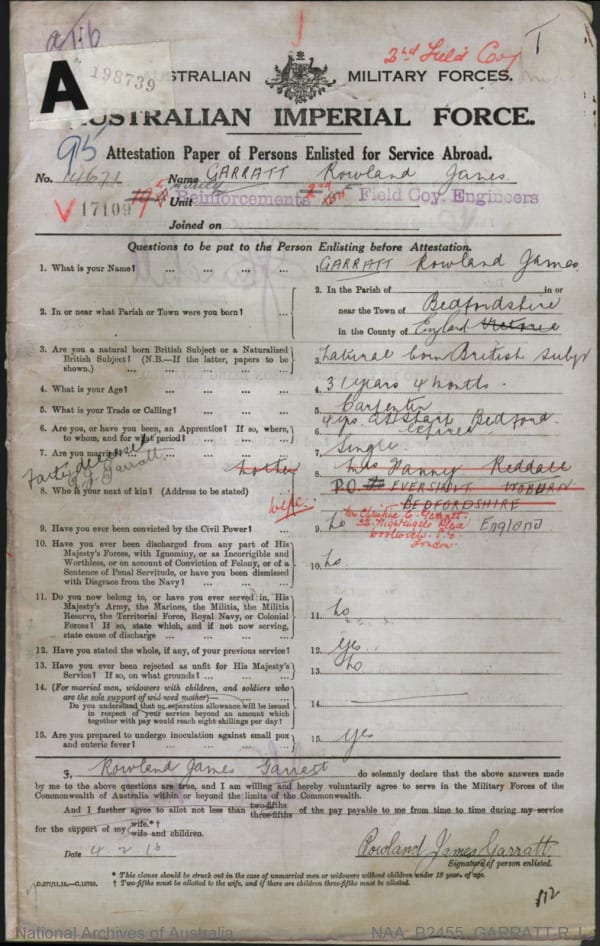 2nd Field Coy
198739
A
AUSTRALIAN MILITARY FORCES.
AUSTRALIAN IMPERIAL FORCE.
95
Attestation Paper of Persons Enlisted for Service Abroad.
No. 14671 Name GARRATT Rowland James
17109 Unit Reinforcements Field Coy. Engineers
Joined on
Questions to be put to the Person Enlisting before Attestation.
1. What is your Name? ... ... ... 1. GARRATT Rowland James
2. In or near what Parish or Town were you born? ... 2. In the Parish of in or
near the Town of Bedfordshire
in the County of England Victoria
3. Are you a natural born British Subject or a Naturalized
British Subject? (N.B.—If the latter, papers to be
shown.) ... ... ... 3. Natural born British Subject
4. What is your Age? ... ... ... 4. 31 years 4 months
5. What is your Trade or Calling? ... ... 5. Carpenter
6. Are you, or have you been, an Apprentice? If so, where,
to whom, and for what period? ... ... 6. Bedford
expired
7. Are you married? 7. Single
8. Who is your next of kin? (Address to be stated) Mother 8. Mrs Fanny Reddall
P.O. EVERSHOLT WOBURN
BEDFORDSHIRE
England
wife
Garratt
33 Nightingale Place
Woolwich S.E.
London
9. Have you ever been convicted by the Civil Power? ... 9. No
10. Have you ever been discharged from any part of His
Majesty's Forces, with Ignominy, or as Incorrigible and
Worthless, or on account of Conviction of Felony, or of a
Sentence of Penal Servitude, or have you been dismissed
with Disgrace from the Navy? ... ... 10. No
11. Do you now belong to, or have you ever served in, His
Majesty's Army, the Marines, the Militia, the Militia
Reserve, the Territorial Force, Royal Navy, or Colonial
Forces? If so, state which, and if not now serving,
state cause of discharge ... ... ... 11. No
12. Have you stated the whole, if any, of your previous service? 12. Yes
13. Have you ever been rejected as unfit for His Majesty's
Service? If so, on what grounds? ... ... 13. No
14. (For married men, widowers with children, and soldiers who
are the sole support of widowed mother)—
Do you understand that no separation allowance will be issued
in respect of your service beyond an amount which
together with pay would reach eight shillings per day? 14.
15. Are you prepared to undergo inoculation against small pox
and enteric fever? ... ... ... 15. Yes
I, Rowland James Garratt do solemnly declare that the above answers made
by me to the above questions are true, and I am willing and hereby voluntarily agree to serve in the Military Forces of the
Commonwealth of Australia within or beyond the limits of the Commonwealth.
And I further agree to allot not less than two-fifths three-fifths of the pay payable to me from time to time during my service
for the support of my wife.*† wife and children.
Date 4.2.16 Rowland James Garratt
Signature of person enlisted.
* This clause should be struck out in the case of unmarried men or widowers without children under 18 years of age.
† Two-fifths must be allotted to the wife, and if there are children three-fifths must be allotted.
D.277/11.15.—C.15789.
National Archives of Australia NAA: B2455, GARRATT R J